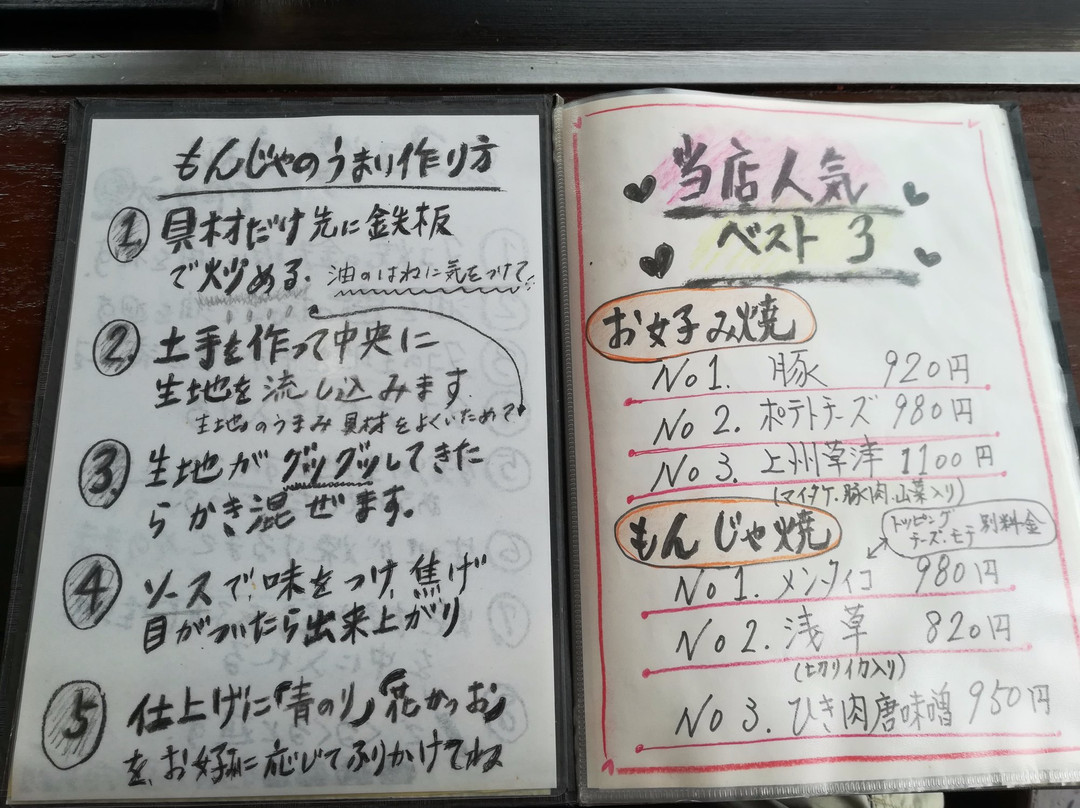 もんじゃのうまい作り方
1. 具材だけ先に鉄板
で炒める. 油のはねに気をつけて!!
2. 土手を作って中央に
生地を流し込みます.
生地のうまみ 具材をよくいためて
3. 生地がグツグツしてきた
らかき混ぜます。
4 ソースで味をつけ,焦げ
目がついたら出来上がり
5 仕上げに「青のり」「花かつお」
を、お好みに応じてふりかけてね
当店人気
ベスト3
お好み焼
No1. 豚 920円
No2. ポテトチーズ 980円
No3. 上州草津 1100円
(マイタケ、豚肉、山菜入り)
もんじゃ焼
トッピング
チーズ・モチ 別料金
No1. メンタイコ 980円
No2. 浅草 820円
(切りイカ入り)
No3. ひき肉唐味噌 950円